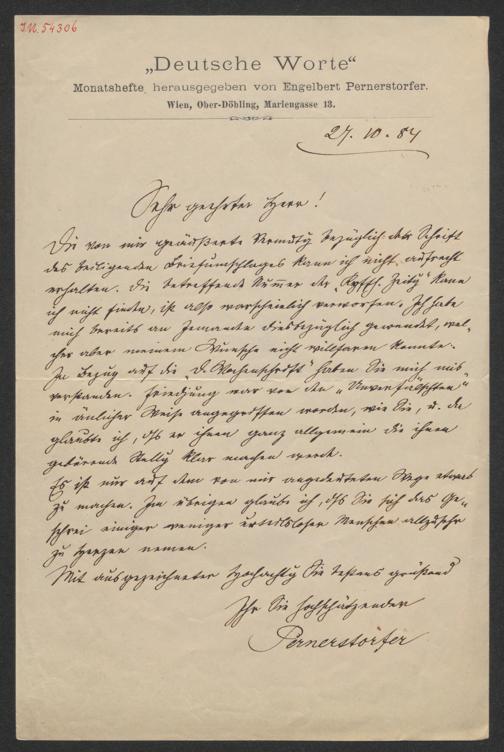 I.N. 54306
„Deutsche Worte“
Monatshefte, herausgegeben von Engelbert Pernerstorfer.
Wien, Ober-Döbling, Mariengasse 13.
27. 10. 84
Sehr geehrter Herr!
Die von mir geäußerte Vermutg bezüglich der Schrift
des beiliegenden Briefumschlages kann ich nicht aufrecht
erhalten. Die betreffende Nummer der Zeitg“ kann
ich nicht finden, ist also warscheinlich verworfen. Ich habe
mich bereits an Jemanden diesbezüglich gewendet, wel-
cher aber meinem Wunsche nicht willfaren konnte.
In Bezug auf die „D. Wochenschrift“ haben Sie mich mis-
verstanden. Friedjung war von den „Unverfälschten“
in änlicher Weise angegriffen worden, wie Sie, u. da
glaubte ich, dß er ihnen ganz allgemein die ihnen
gebürende Stellg klar machen werde.
Es ist nur auf dem von mir angedeuteten Wege etwas
zu machen. Im übrigen glaube ich, dß Sie sich das Ge-
schrei einiger weniger urteilsloser Menschen allzusehr
zu Herzen nemen.
Mit ausgezeichneter Hochachtg Sie bestens grüßend
Ihr Sie hochschätzender
Pernerstorfer